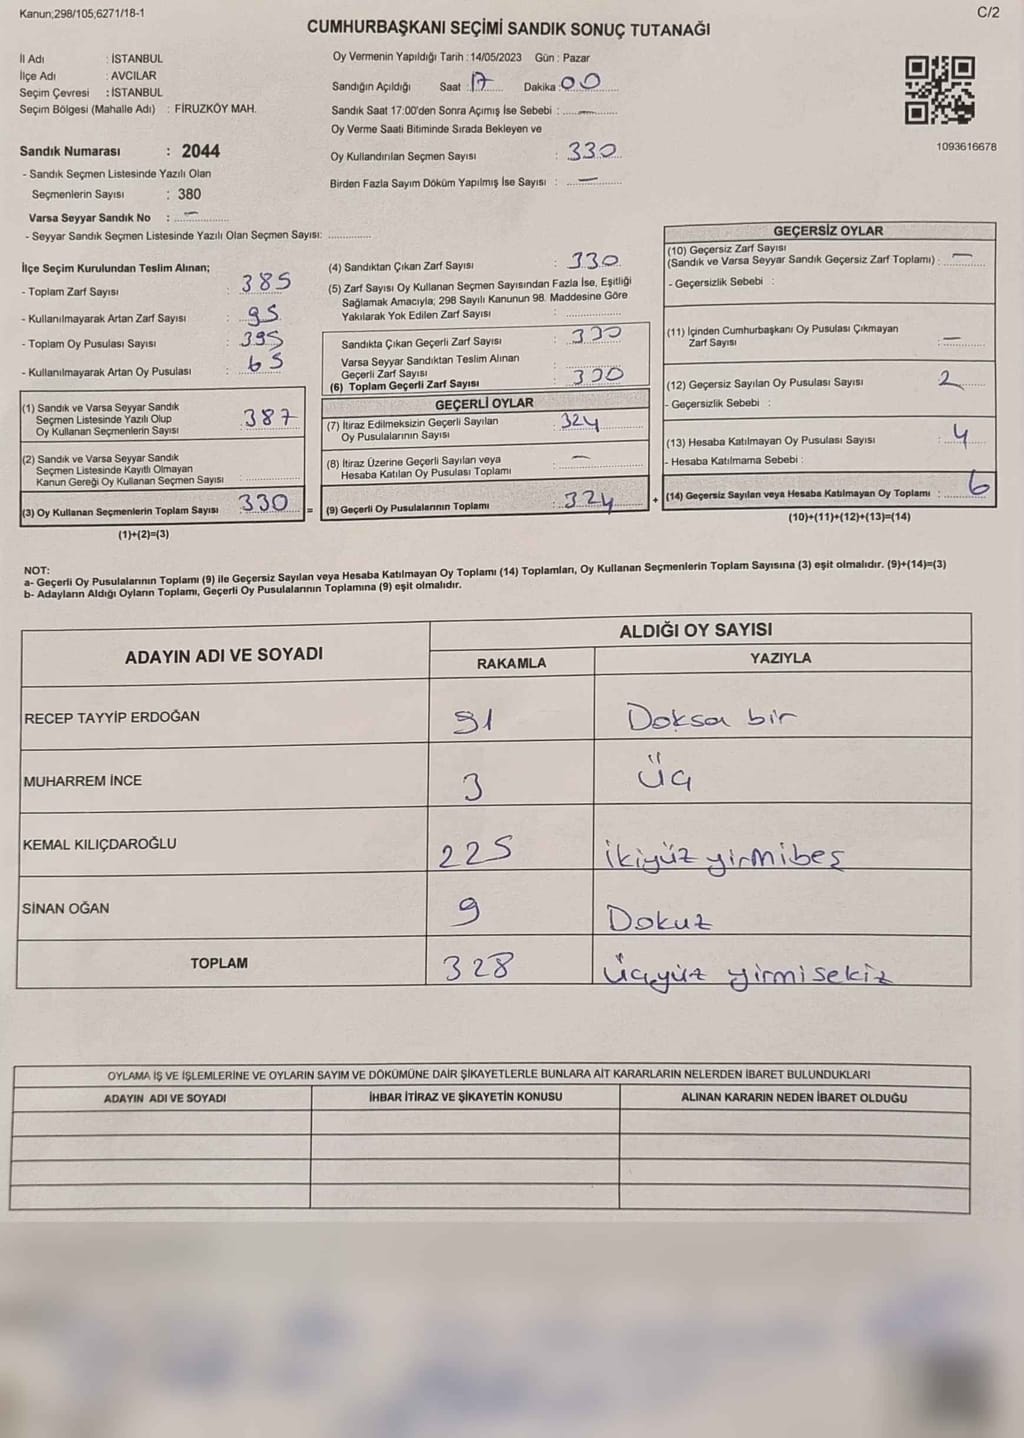 Kanun;298/105;6271/18-1
C/2
CUMHURBAŞKANI SEÇİMİ SANDIK SONUÇ TUTANAĞI
İl Adı : İSTANBUL
İlçe Adı : AVCILAR
Seçim Çevresi : İSTANBUL
Seçim Bölgesi (Mahalle Adı) : FİRUZKÖY MAH.
Sandık Numarası : 2044
- Sandık Seçmen Listesinde Yazılı Olan
Seçmenlerin Sayısı : 380
Varsa Seyyar Sandık No : —
- Seyyar Sandık Seçmen Listesinde Yazılı Olan Seçmen Sayısı:
Oy Vermenin Yapıldığı Tarih : 14/05/2023 Gün : Pazar
Sandığın Açıldığı Saat : 17 Dakika : 00
Sandık Saat 17:00'den Sonra Açımış İse Sebebi : —
Oy Verme Saati Bitiminde Sırada Bekleyen ve
Oy Kullandırılan Seçmen Sayısı : 330
Birden Fazla Sayım Döküm Yapılmış İse Sayısı : —
1093616678
İlçe Seçim Kurulundan Teslim Alınan;
- Toplam Zarf Sayısı : 385
- Kullanılmayarak Artan Zarf Sayısı : 95
- Toplam Oy Pusulası Sayısı : 395
- Kullanılmayarak Artan Oy Pusulası : 65
(1) Sandık ve Varsa Seyyar Sandık
Seçmen Listesinde Yazılı Olup
Oy Kullanan Seçmenlerin Sayısı : 387
(2) Sandık ve Varsa Seyyar Sandık
Seçmen Listesinde Kayıtlı Olmayan
Kanun Gereği Oy Kullanan Seçmen Sayısı :
(3) Oy Kullanan Seçmenlerin Toplam Sayısı : 330 =
(1)+(2)=(3)
(4) Sandıktan Çıkan Zarf Sayısı : 330
(5) Zarf Sayısı Oy Kullanan Seçmen Sayısından Fazla İse, Eşitliği
Sağlamak Amacıyla; 298 Sayılı Kanunun 98. Maddesine Göre
Yakılarak Yok Edilen Zarf Sayısı :
Sandıkta Çıkan Geçerli Zarf Sayısı : 330
Varsa Seyyar Sandıktan Teslim Alınan
Geçerli Zarf Sayısı :
(6) Toplam Geçerli Zarf Sayısı : 330
GEÇERLİ OYLAR
(7) İtiraz Edilmeksizin Geçerli Sayılan
Oy Pusulalarının Sayısı : 324
(8) İtiraz Üzerine Geçerli Sayılan veya
Hesaba Katılan Oy Pusulası Toplamı : —
(9) Geçerli Oy Pusulalarının Toplamı : 324 +
GEÇERSİZ OYLAR
(10) Geçersiz Zarf Sayısı
(Sandık ve Varsa Seyyar Sandık Geçersiz Zarf Toplamı) : —
- Geçersizlik Sebebi :
(11) İçinden Cumhurbaşkanı Oy Pusulası Çıkmayan
Zarf Sayısı : —
(12) Geçersiz Sayılan Oy Pusulası Sayısı : 2
- Geçersizlik Sebebi :
(13) Hesaba Katılmayan Oy Pusulası Sayısı : 4
- Hesaba Katılmama Sebebi :
(14) Geçersiz Sayılan veya Hesaba Katılmayan Oy Toplamı : 6
(10)+(11)+(12)+(13)=(14)
NOT:
a- Geçerli Oy Pusulalarının Toplamı (9) ile Geçersiz Sayılan veya Hesaba Katılmayan Oy Toplamı (14) Toplamları, Oy Kullanan Seçmenlerin Toplam Sayısına (3) eşit olmalıdır. (9)+(14)=(3)
b- Adayların Aldığı Oyların Toplamı, Geçerli Oy Pusulalarının Toplamına (9) eşit olmalıdır.
ADAYIN ADI VE SOYADI
ALDIĞI OY SAYISI
RAKAMLA YAZIYLA
RECEP TAYYİP ERDOĞAN 91 Doksa bir
MUHARREM İNCE 3 Üç
KEMAL KILIÇDAROĞLU 225 ikiyüz yirmibeş
SİNAN OĞAN 9 Dokuz
TOPLAM 328 Üçyüz yirmisekiz
OYLAMA İŞ VE İŞLEMLERİNE VE OYLARIN SAYIM VE DÖKÜMÜNE DAİR ŞİKAYETLERLE BUNLARA AİT KARARLARIN NELERDEN İBARET BULUNDUKLARI
ADAYIN ADI VE SOYADI İHBAR İTİRAZ VE ŞİKAYETİN KONUSU ALINAN KARARIN NEDEN İBARET OLDUĞU